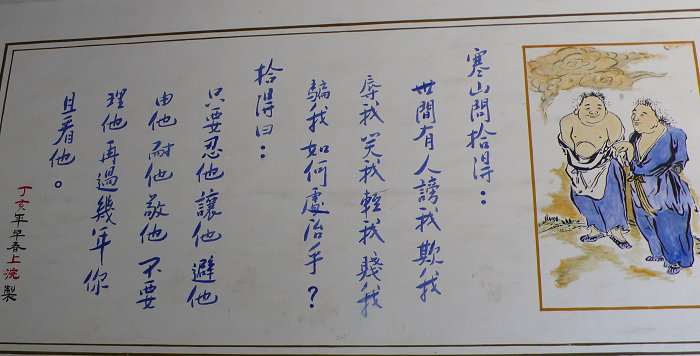 寒山問拾得：
世間有人謗我欺我
辱我笑我輕我賤我
騙我如何處治乎？
拾得曰：
只要忍他讓他避他
由他耐他敬他不要
理他再過幾年你
且看他。
丁亥年早春上浣製